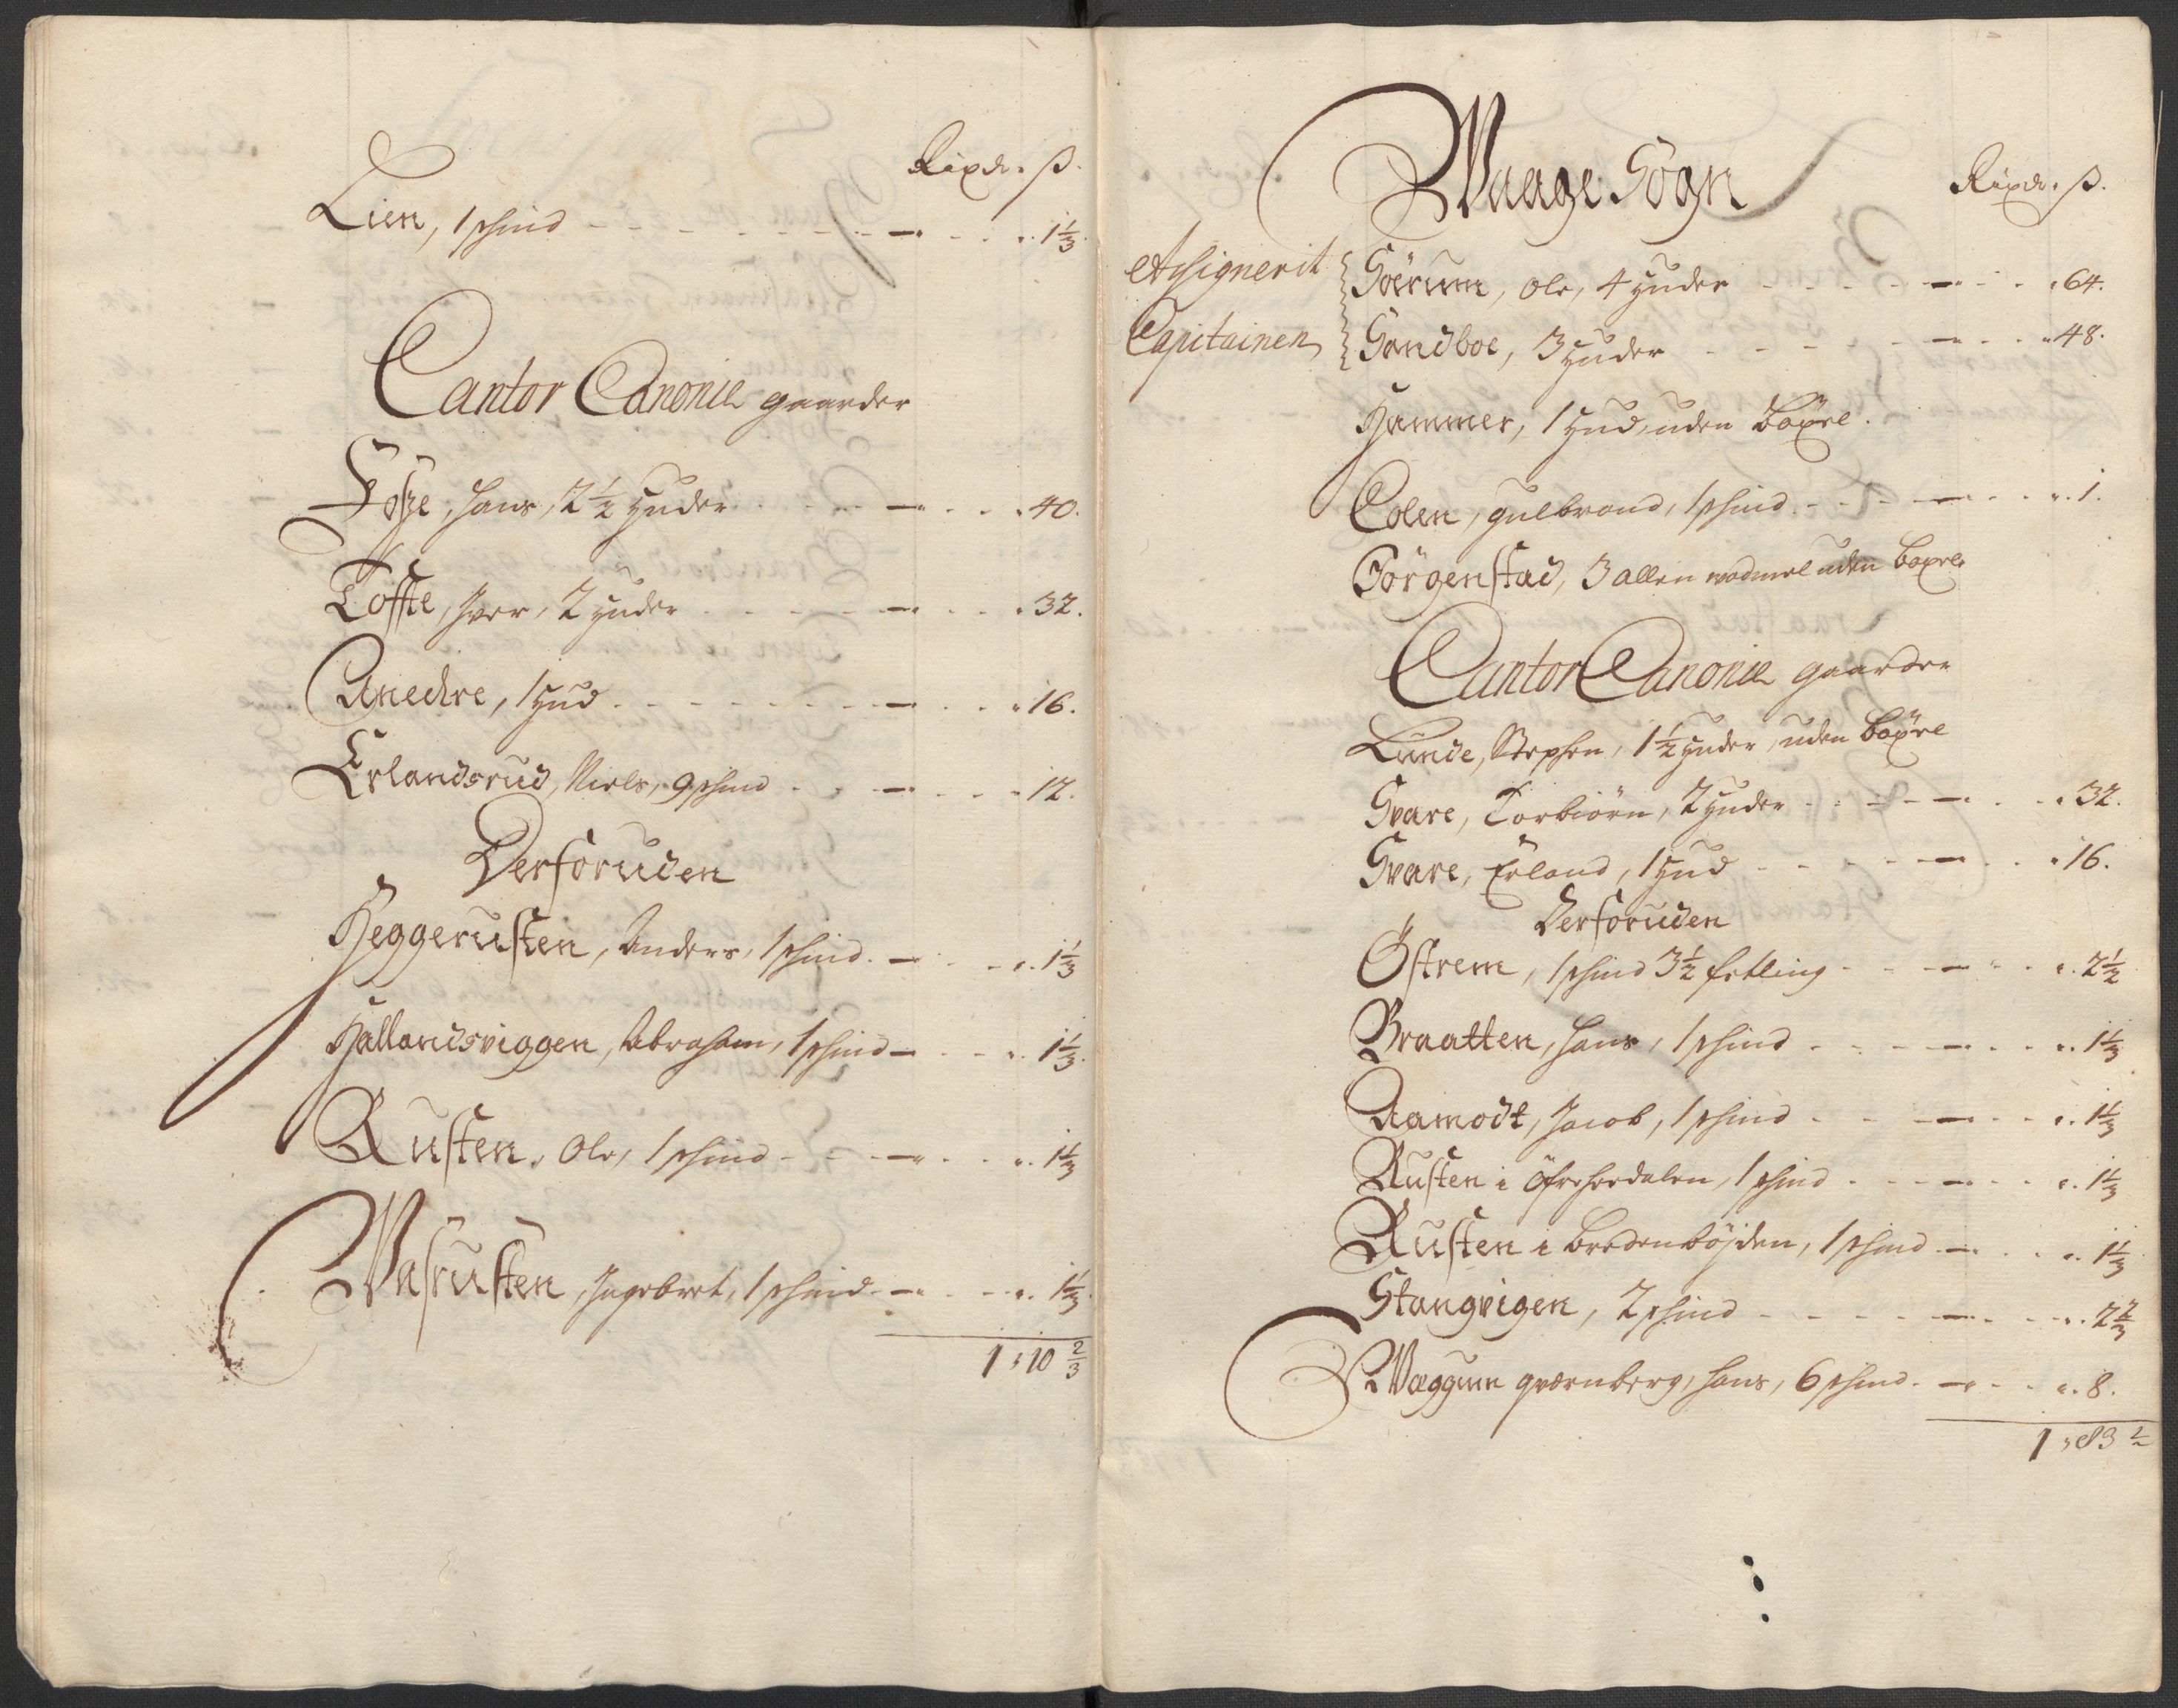 Rixdr. ß.
Lien, 1 skind - - - 1 1/3.
Cantor Canonie gaarder
Hans, 2 1/2 huder - - - 40.
Toffte, Iver, 2 huder - - - 32.
1 hud - - - 16.
Erlandsrud, Niels, 9 skind - - - 12.
Desforuden
Heggerusten, Anders, 1 skind - - - 1 1/3
Hallandsviggen, Abraham, 1 skind - - - 1 1/3.
Rusten, Ole, 1 skind - - - 1 1/3
Vasrusten, Ingebret, 1 skind - - - 1 1/3.
1 : 10 2/3
Waage Sogn
Rixdr. ß.
Assignerit
Capitainen
Sörum, Ole, 4 huder - - - 64.
Sandboe, 3 huder - - - 48.
Hammer, 1 hud, uden böxel.
Colen, gulbrand, 1 skind - - - 1.
Görgenstad, 3 allen wadmel uden boxel
Cantor Canonie gaarder
Lunde, Stephen, 1 1/2 huder, uden böxel
Svare, Torbiörn, 2 huder - - - 32.
Svare, Erland, 1 hud - - - 16.
Desforuden
Östrem, 1 skind 3 1/2 setling - - - 2 1/2
Braatten, Hans, 1 skind - - - 1 1/3
Aamodt, Jacob, 1 skind - - - 1 1/3
Rusten i 1 skind - - - 1 1/3
Rusten i 1 skind - - - 1 1/3
Stangvigen, 2 skind - - - 2 2/3
Waggum qvernberg, Hans, 6 skind - - - 8.
1 : 83 1/2